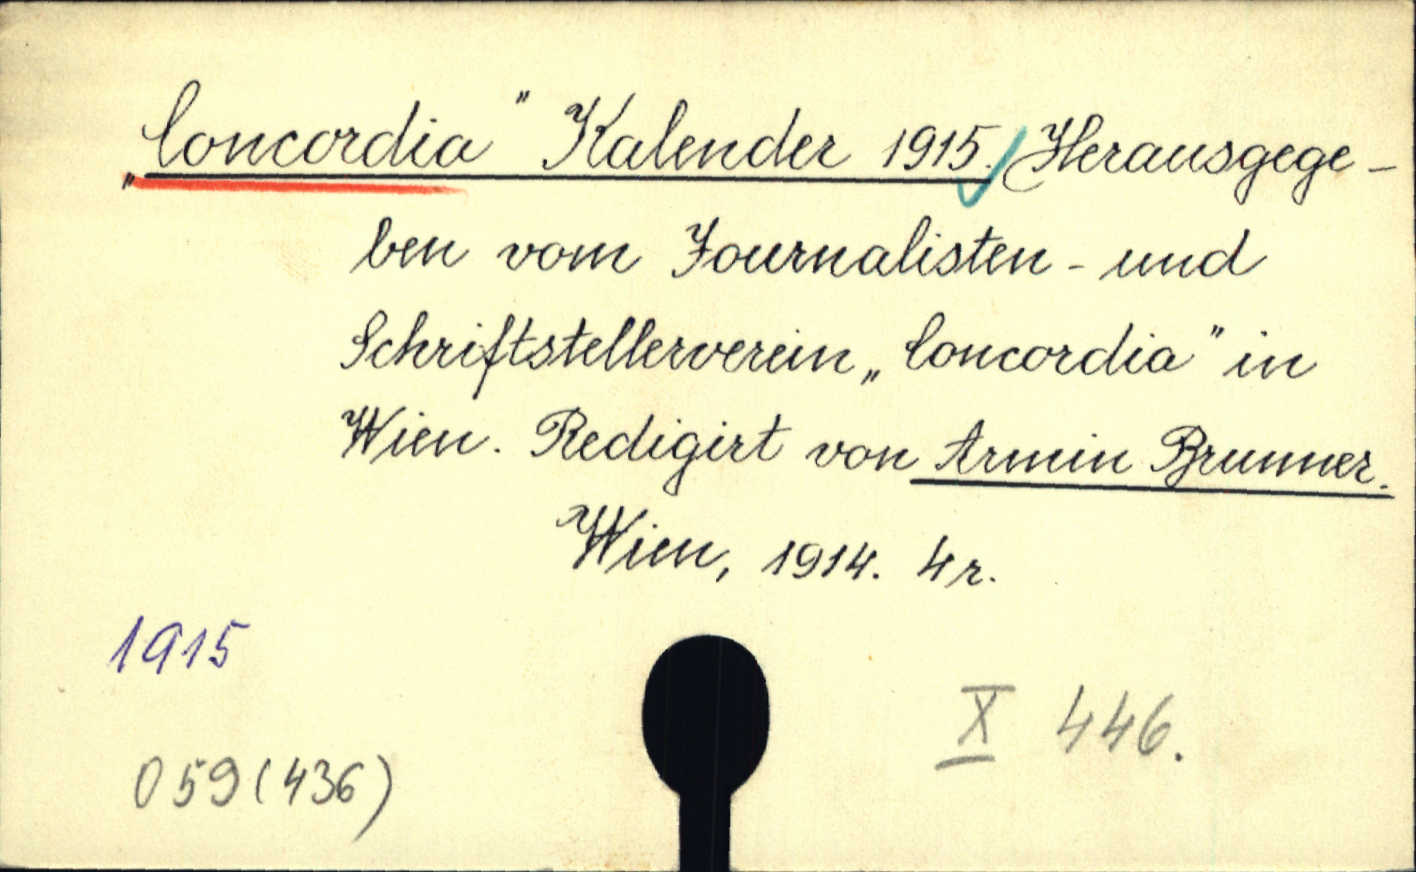 „Concordia" Kalender 1915. Herausgege-
ben vom Journalisten- und
Schriftstellerverein „Concordia" in
Wien. Redigirt von Armin Brunner.
Wien, 1914. 4r.
1915
X 446.
059(436)